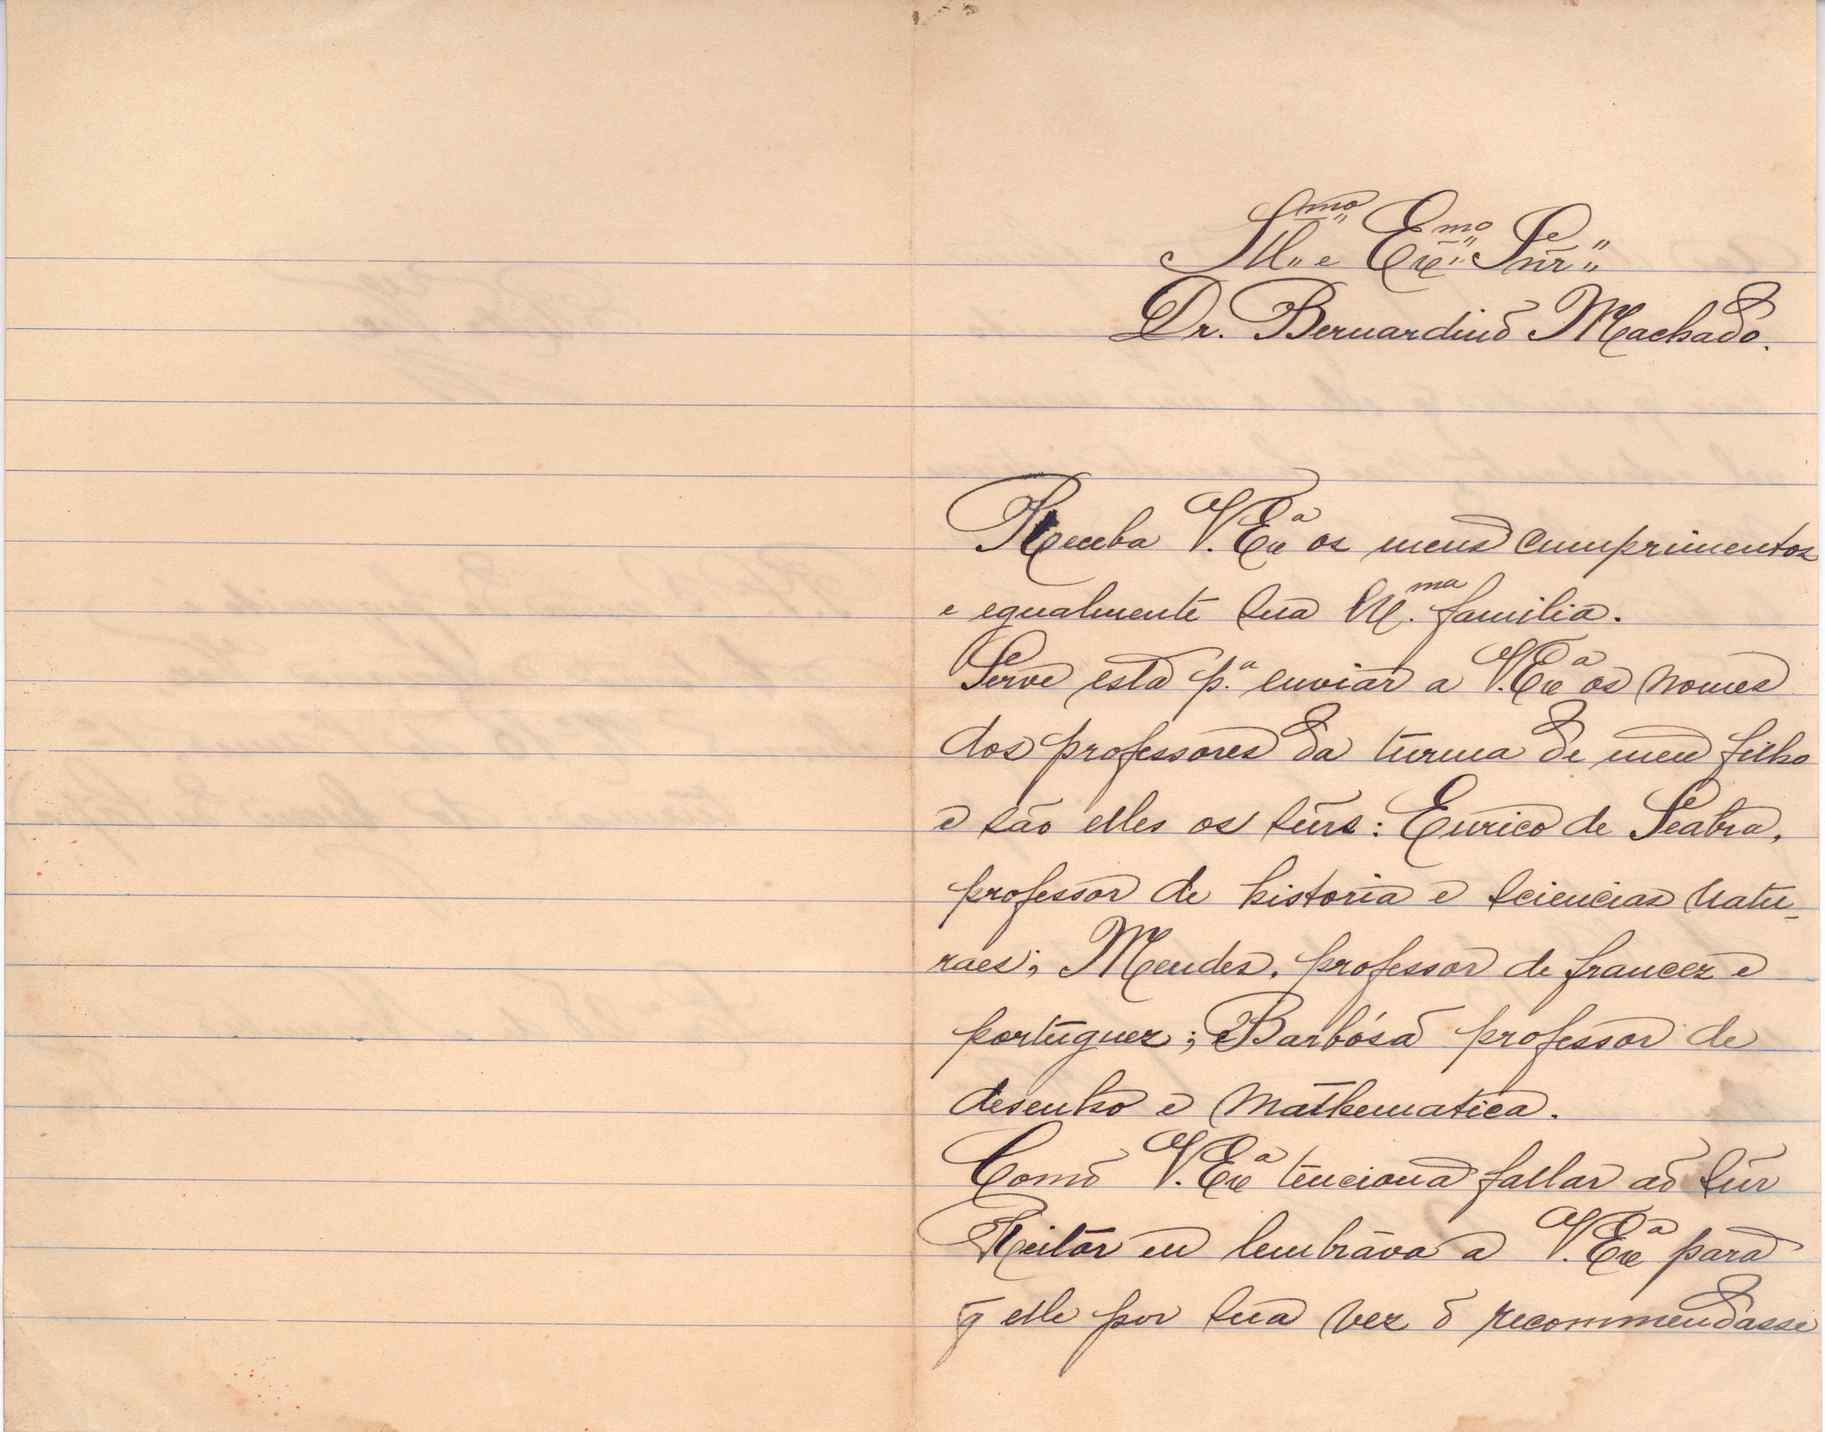 Ill.mo e Ex.mo Snr.
Dr. Bernardino Machado.
Receba V. Ex.a os meus cumprimentos
e egualmente sua Ill.ma familia.
Serve esta p.a enviar a V. Ex.a os nomes
dos professores da turma de meu filho
e são elles os snrs: Eurico de Seabra,
professor de historia e sciencias natu-
raes; Mendes, professor de francez e
portuguez; Barbósa professor de
desenho e mathematica.
Como V. Ex.a tenciona fallar ao snr
Reitor eu lembrava a V. Ex.a para
q̃ elle por sua vez o recommendasse